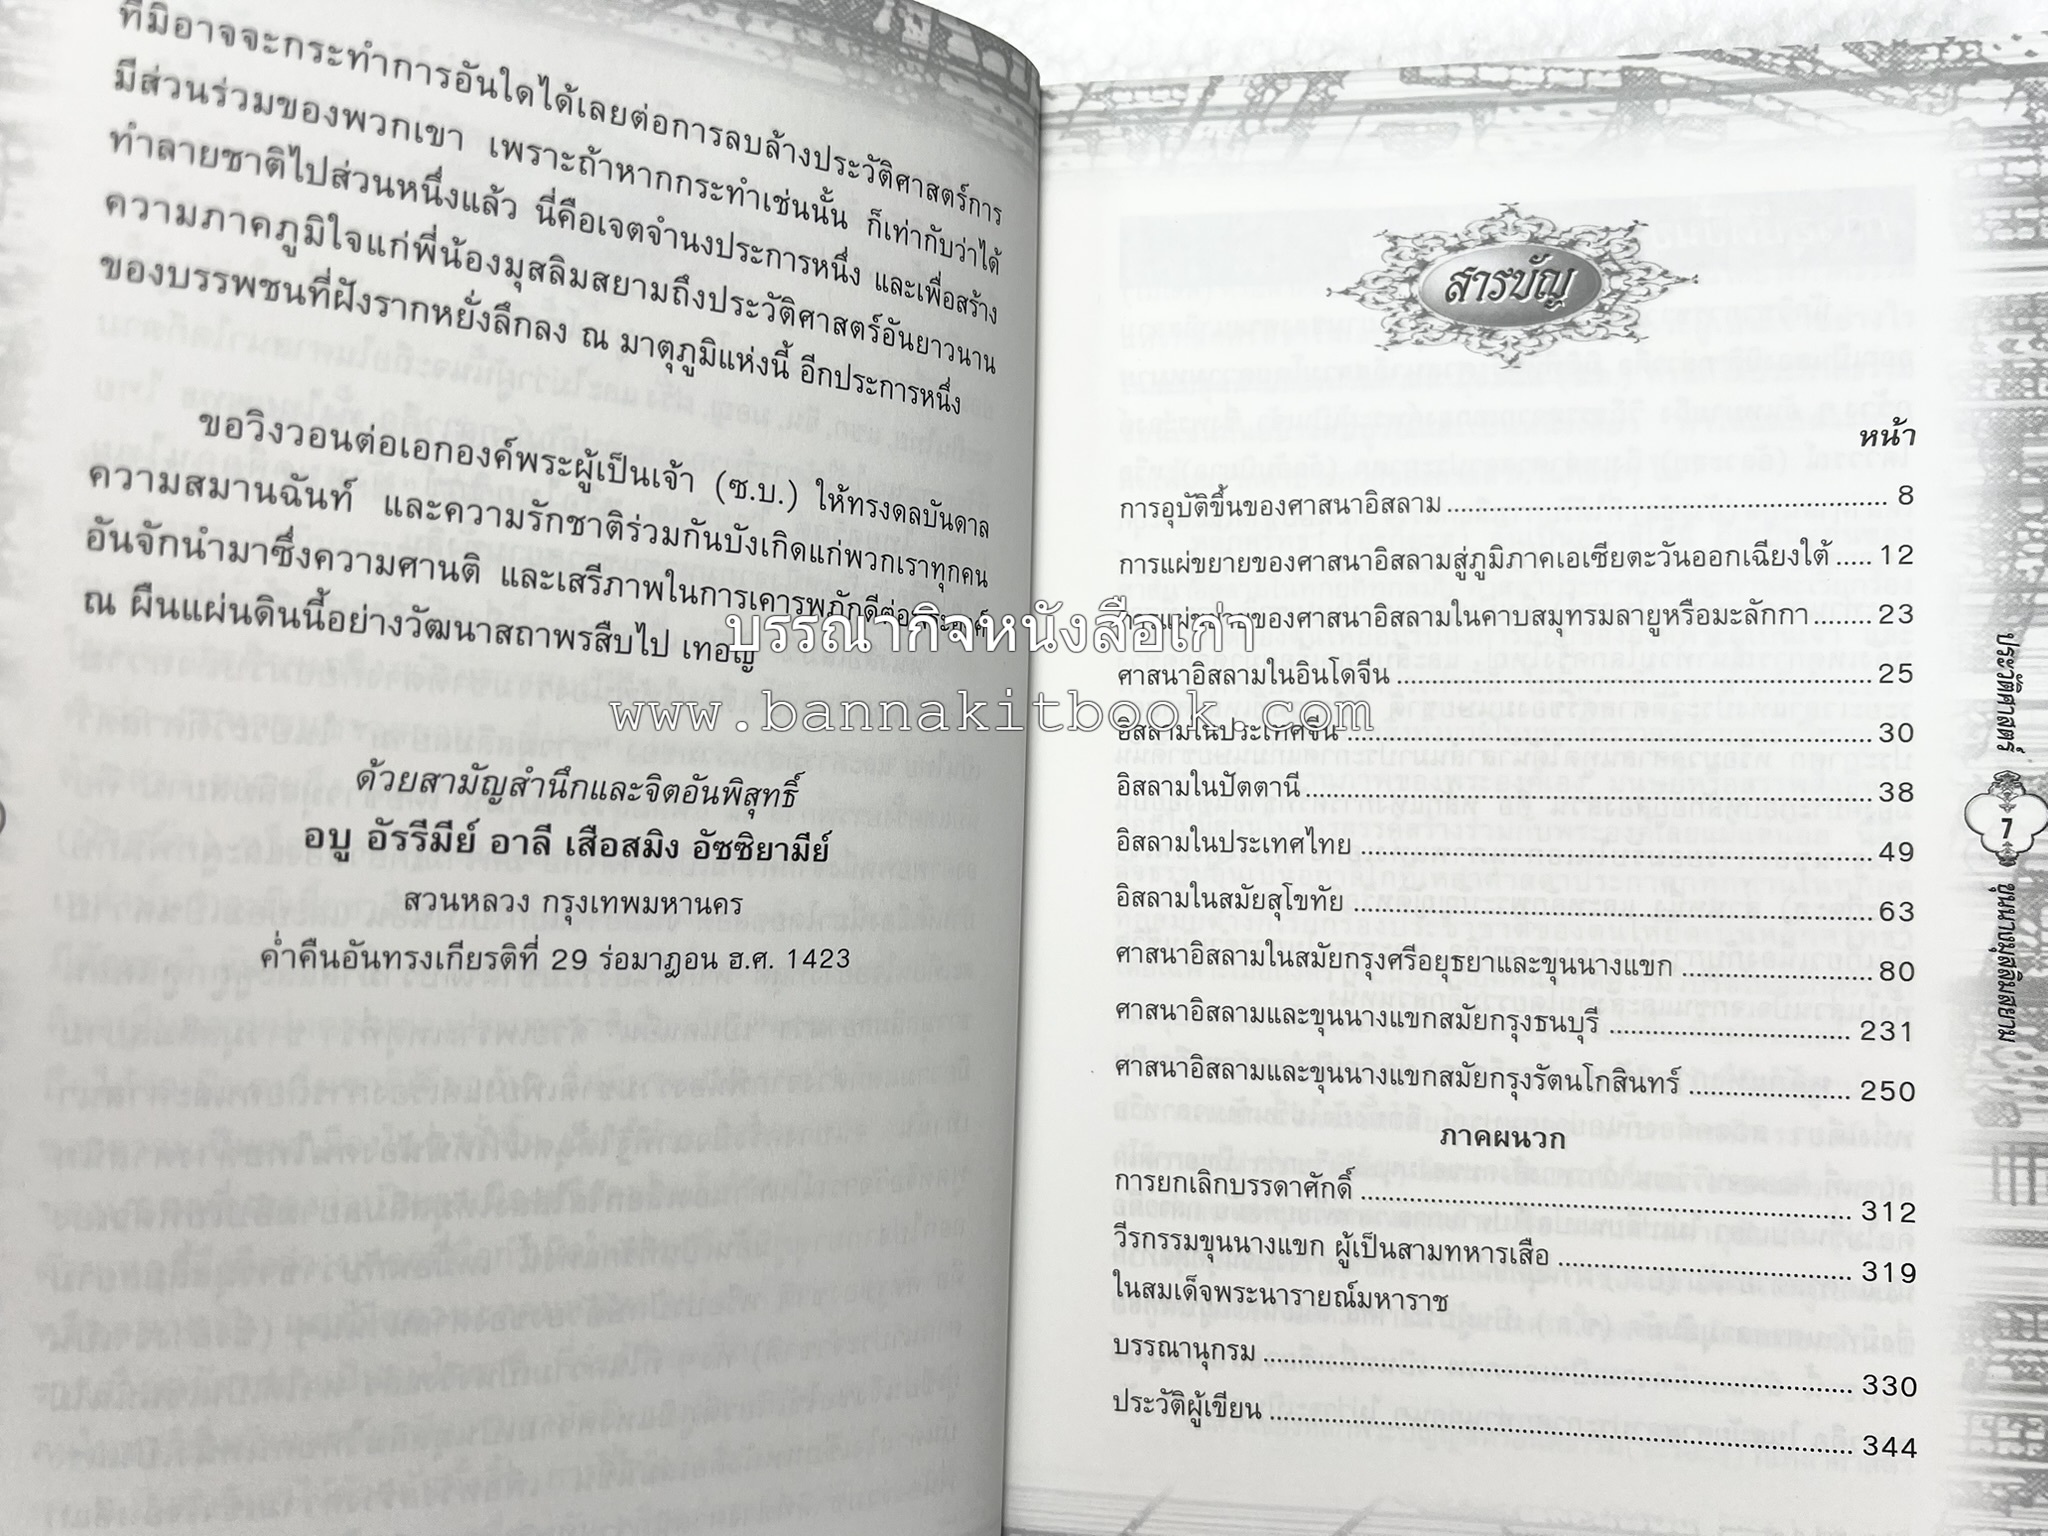 ที่มิอาจจะกระทำการอันใดได้เลยต่อการลบล้างประวัติศาสตร์การ
มีส่วนร่วมของพวกเขา เพราะถ้าหากกระทำเช่นนั้น ก็เท่ากับว่าได้
ทำลายชาติไปส่วนหนึ่งแล้ว นี่คือเจตจำนงประการหนึ่ง และเพื่อสร้าง
ความภาคภูมิใจแก่พี่น้องมุสลิมสยามถึงประวัติศาสตร์อันยาวนาน
ของบรรพชนที่ฝังรากหยั่งลึกลง ณ มาตุภูมิแห่งนี้ อีกประการหนึ่ง
ขอวิงวอนต่อเอกองค์พระผู้เป็นเจ้า (ซ.บ.) ให้ทรงดลบันดาล
ความสมานฉันท์ และความรักชาติร่วมกันบังเกิดแก่พวกเราทุกคน
อันจักนำมาซึ่งความศานติ และเสรีภาพในการเคารพภักดีต่อพระองค์
ณ ผืนแผ่นดินนี้อย่างวัฒนาสถาพรสืบไป เทอญ
ด้วยสามัญสำนึกและจิตอันพิสุทธิ์
อบู อัรรีมีย์ อาลี เสือสมิง อัซซิยามีย์
สวนหลวง กรุงเทพมหานคร
ค่ำคืนอันทรงเกียรติที่ 29 ร่อมาฎอน ฮ.ศ. 1423
บรรณากิจหนังสือเก่า
www.bannakitbook.com
สารบัญ
หน้า
การอุบัติขึ้นของศาสนาอิสลาม ........ 8
การแผ่ขยายของศาสนาอิสลามสู่ภูมิภาคเอเซียตะวันออกเฉียงใต้ ..... 12
การแผ่ขยายของศาสนาอิสลามในคาบสมุทรมลายูหรือมะลักกา ....... 23
ศาสนาอิสลามในอินโดจีน ........ 25
อิสลามในประเทศจีน ........ 30
อิสลามในปัตตานี ........ 38
อิสลามในประเทศไทย ........ 49
อิสลามในสมัยสุโขทัย ........ 63
ศาสนาอิสลามในสมัยกรุงศรีอยุธยาและขุนนางแขก ........ 80
ศาสนาอิสลามและขุนนางแขกสมัยกรุงธนบุรี ........ 231
ศาสนาอิสลามและขุนนางแขกสมัยกรุงรัตนโกสินทร์ ........ 250
ภาคผนวก
การยกเลิกบรรดาศักดิ์ ........ 312
วีรกรรมขุนนางแขก ผู้เป็นสามทหารเสือ ........ 319
ในสมเด็จพระนารายณ์มหาราช
บรรณานุกรม ........ 330
ประวัติผู้เขียน ........ 344
ประวัติศาสตร์
7
ขุนนางมุสลิมสยาม